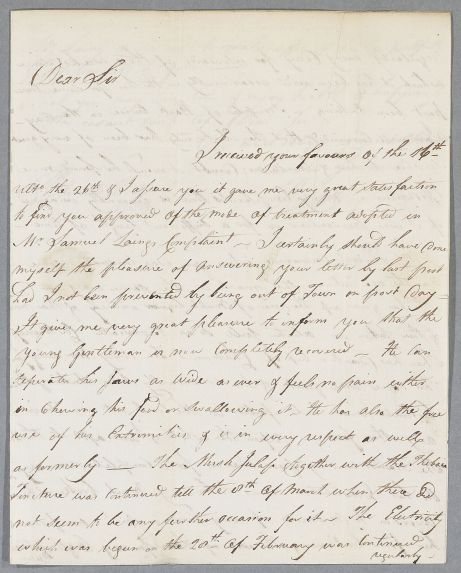 Dear Sir
I received your favours of the 16th
Ulto the 26th & I assure you it gave me very great satisfaction
to find you approved of the mode of treatment adopted in
Mr Samuel Laings Complaint — I certainly should have done
myself the pleasure of answering your letter by last post
had I not been prevented by being out of Town on post day —
It gives me very great pleasure to inform you that the
young Gentleman is now Completely recovered — He can
seperate his Jaws as wide as ever & feels no pain either
in Chewing his food or swallowing it, He has also the free
use of his Extremities & is in every respect as well
as formerly — The Musk Julap together with the Thebaic
Tincture was Continued till the 8th of March when there did
not seem to be any further occasion for it — The Electricity
which was begun on the 20th of February was Continued
regularly —